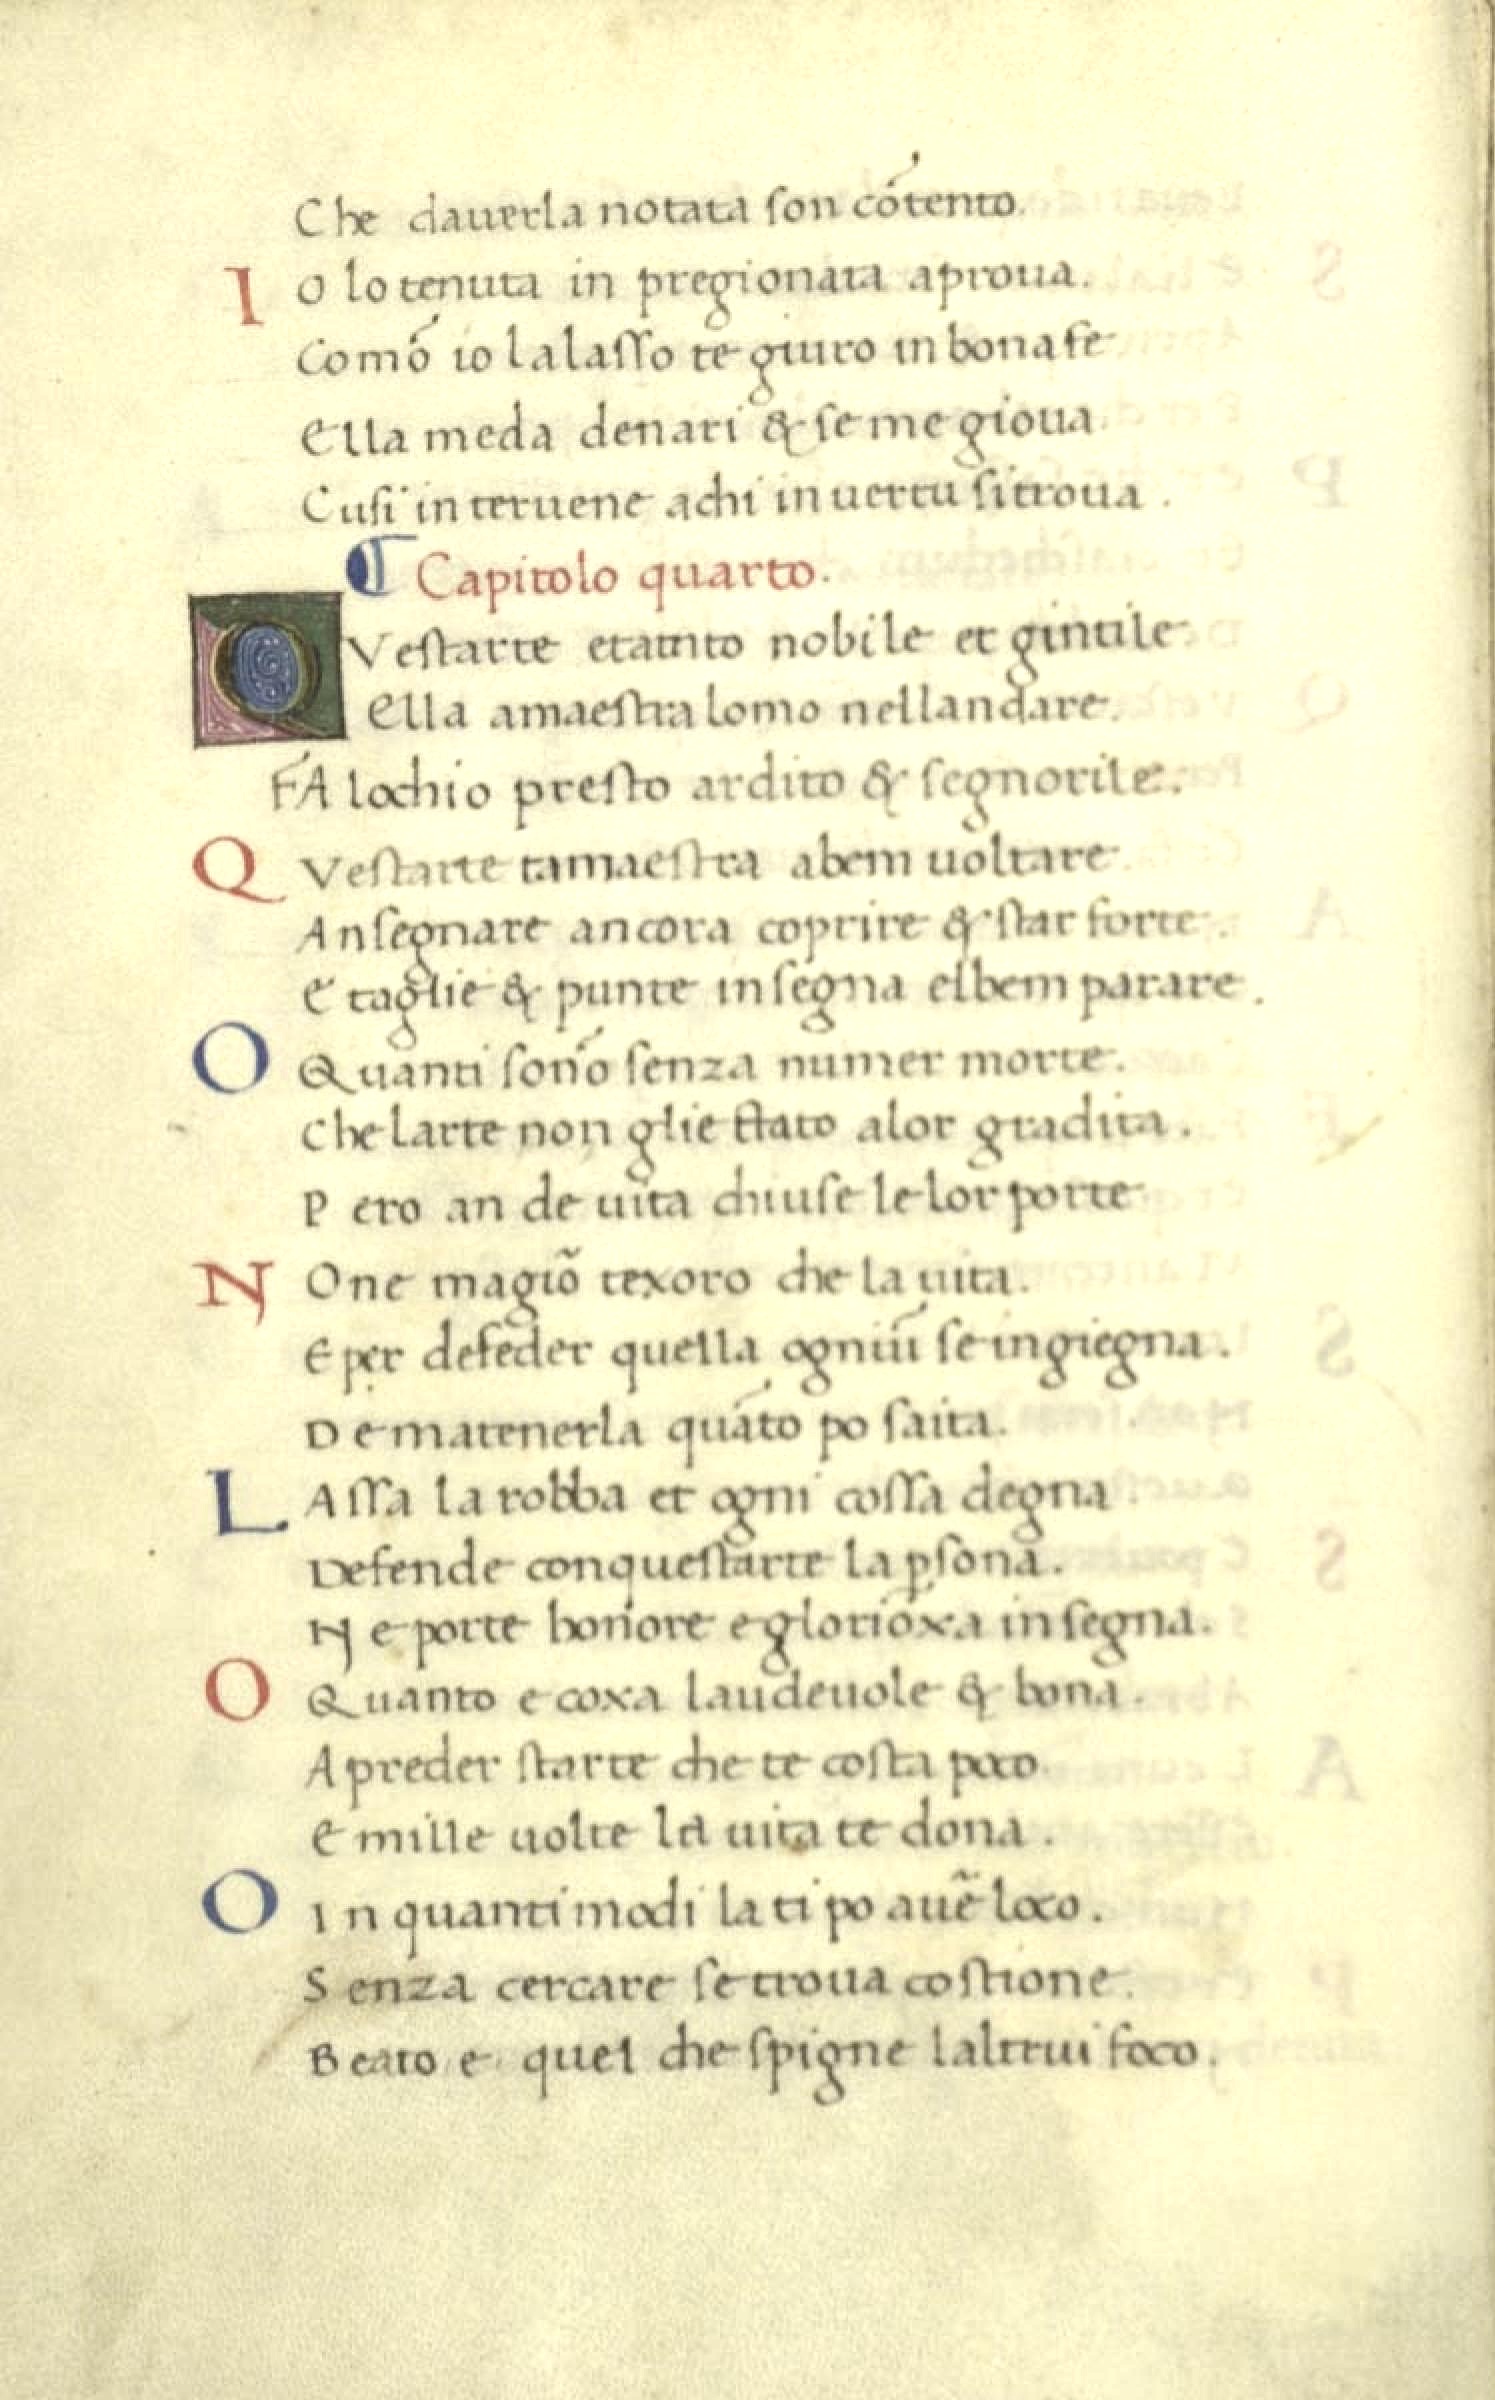 Che dauerla notata son cótento.
IO lo tenuta in pregionata aproua.
Comó io la lasso te giuro in bona fe
Ella me da denari & se me gioua.
Cusi interuene a chi in uertu si troua.
¶ Capitolo quarto.
QVestarte e tanto nobile et gintile.
Ella amaestra lomo nellandare.
FA lochio presto ardito & segnorile.
QVestarte tamaestra a bem uoltare
Ansegnare ancora coprire & star forte.
E taglie & punte insegna el bem parare.
O Quanti sonó senza numer morte.
Che larte non glie stato a lor gradita.
Pero an de uita chiuse le lor porte
NOn e magiõ texoro che la uita.
E per defeder quella ogniú se ingiegna.
De matenerla quáto po saita.
LAssa la robba et ogni cossa degna.
Defende con questarte la psona.
Ne porte honore e glorioxa insegna.
O Quanto e coxa laudeuole & bona.
A preder starte che te costa poco
E mille uolte la uita te dona.
O In quanti modi la ti po auẽ loco.
Senza cercare se troua costione.
Beato e quel che spigne laltrui foco.